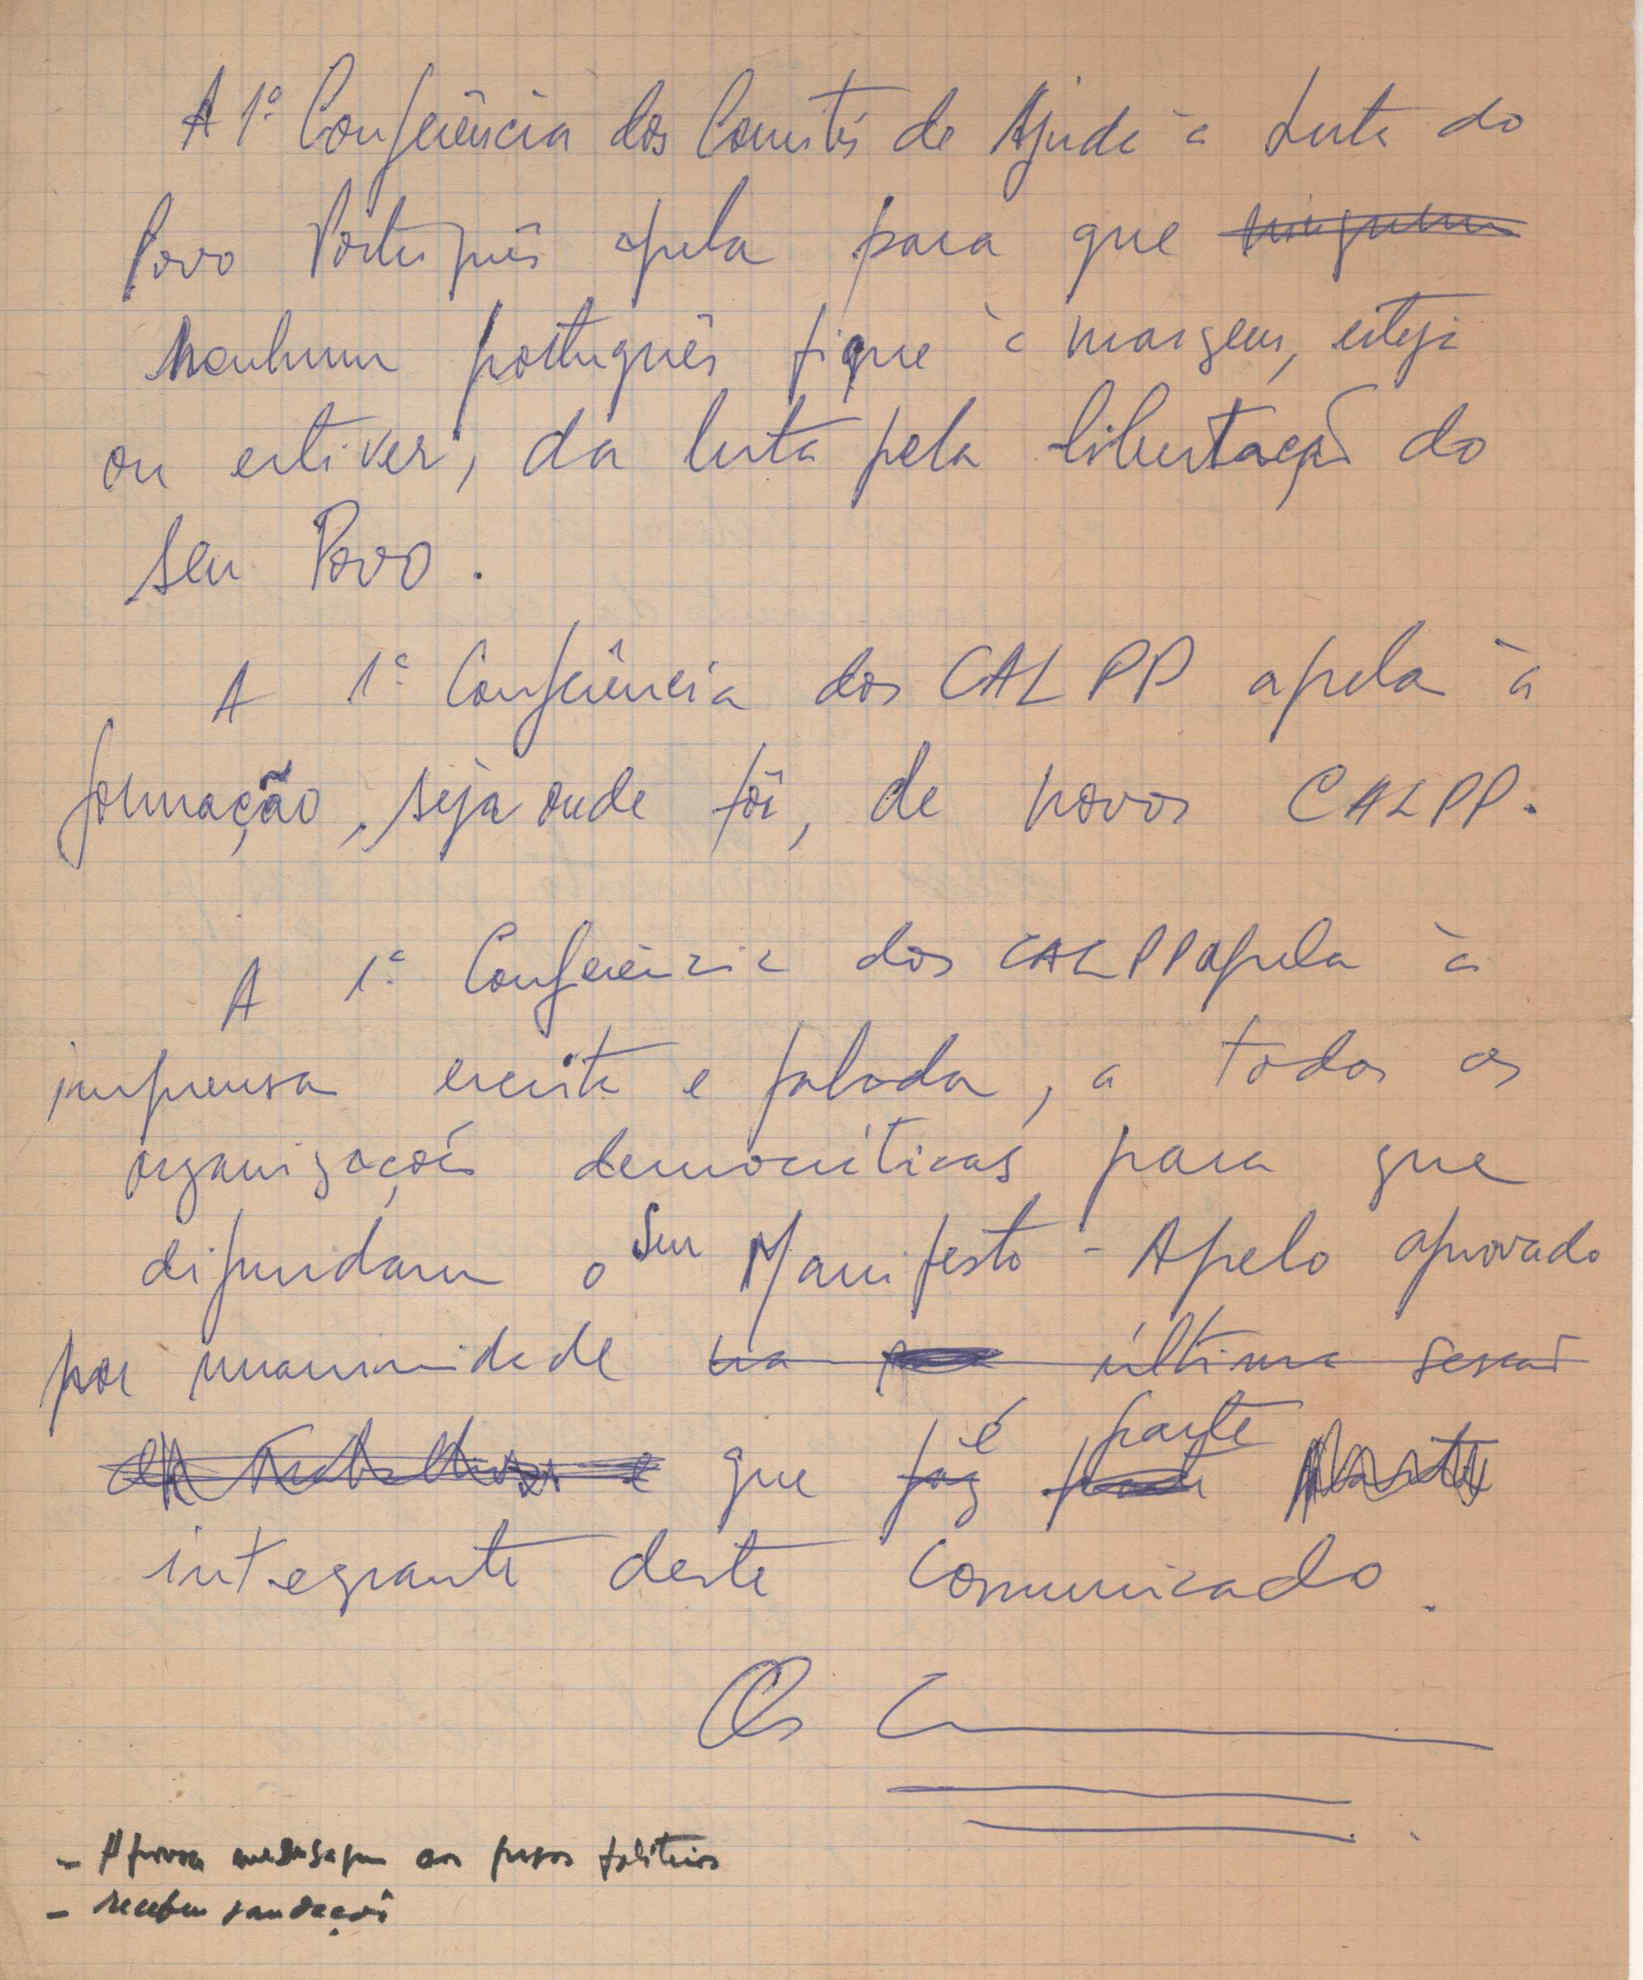 A 1ª Conferência dos Comités de Ajuda à Luta do
Povo Português apela para que ninguém
Nenhum português fique à margem, esteja
ou estiver, da luta pela libertação do
seu Povo.
A 1ª Conferência dos CALPP apela à
formação, seja onde fôr, de novos CALPP.
A 1ª Conferência dos CALPP apela à
imprensa escrita e falada, a todas as
organizações democráticas para que
difundam o seu Manifesto-Apelo aprovado
por unanimidade na última sessão
é parte
de trabalhos e que faz
integrante deste comunicado.
Os C
- Aprova mensagem aos presos politicos
- recebeu saudações